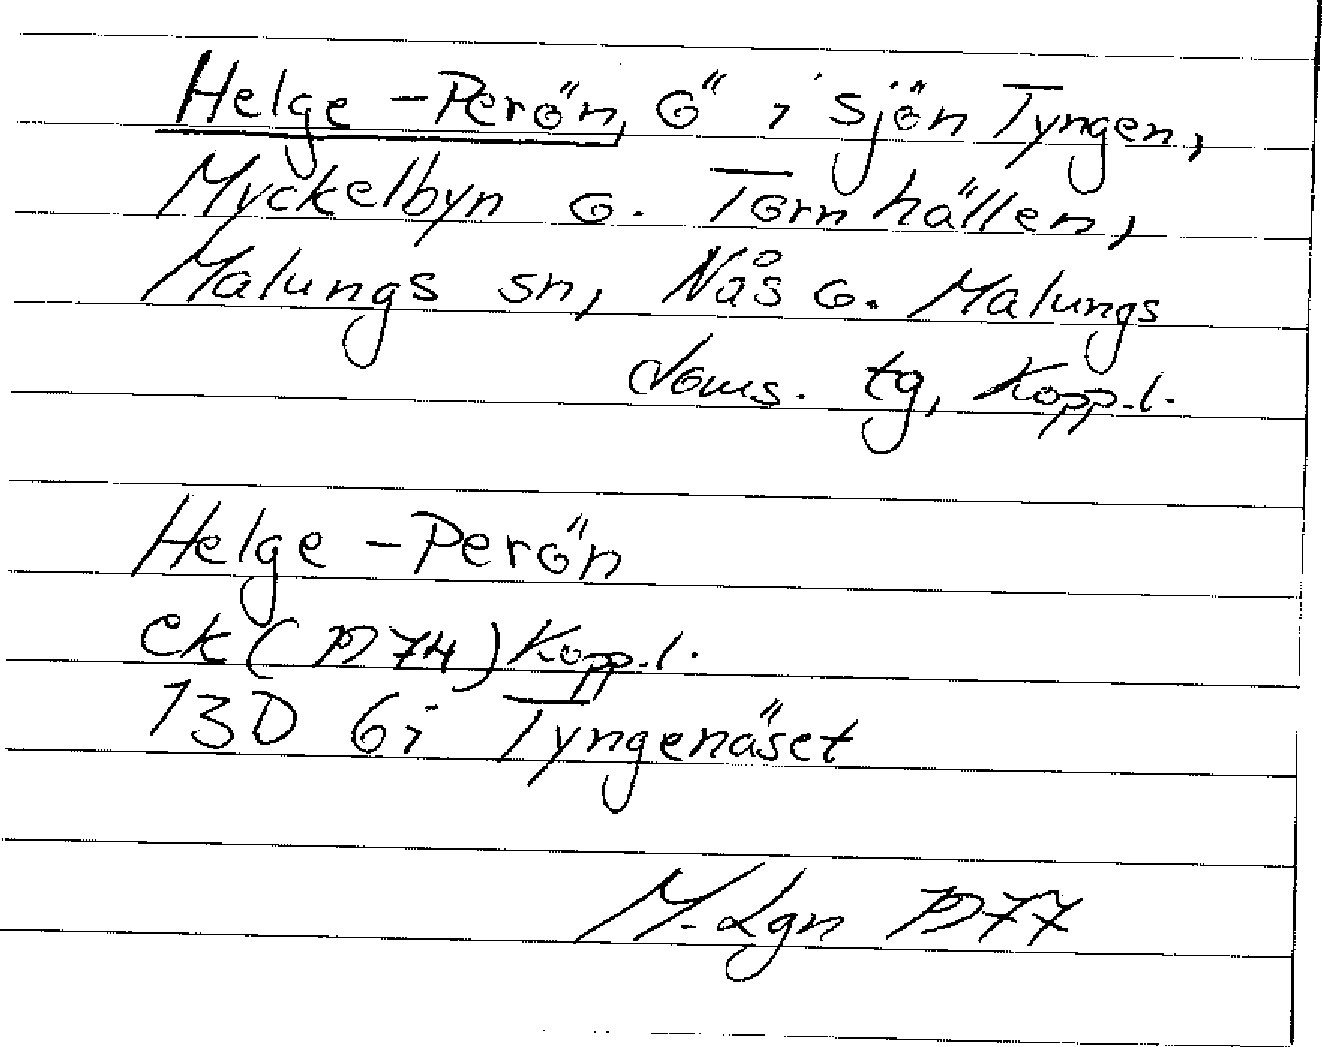 Helge-Perön, ö i sjön Tyngen,
Myckelbyn o. Törnhällen,
Malungs sn, Nås o. Malungs
doms. tg, Kopp.l.
Helge-Perön
ek (1974) Kopp.l.
13D 6i Tyngenäset
M. Lgn 1977